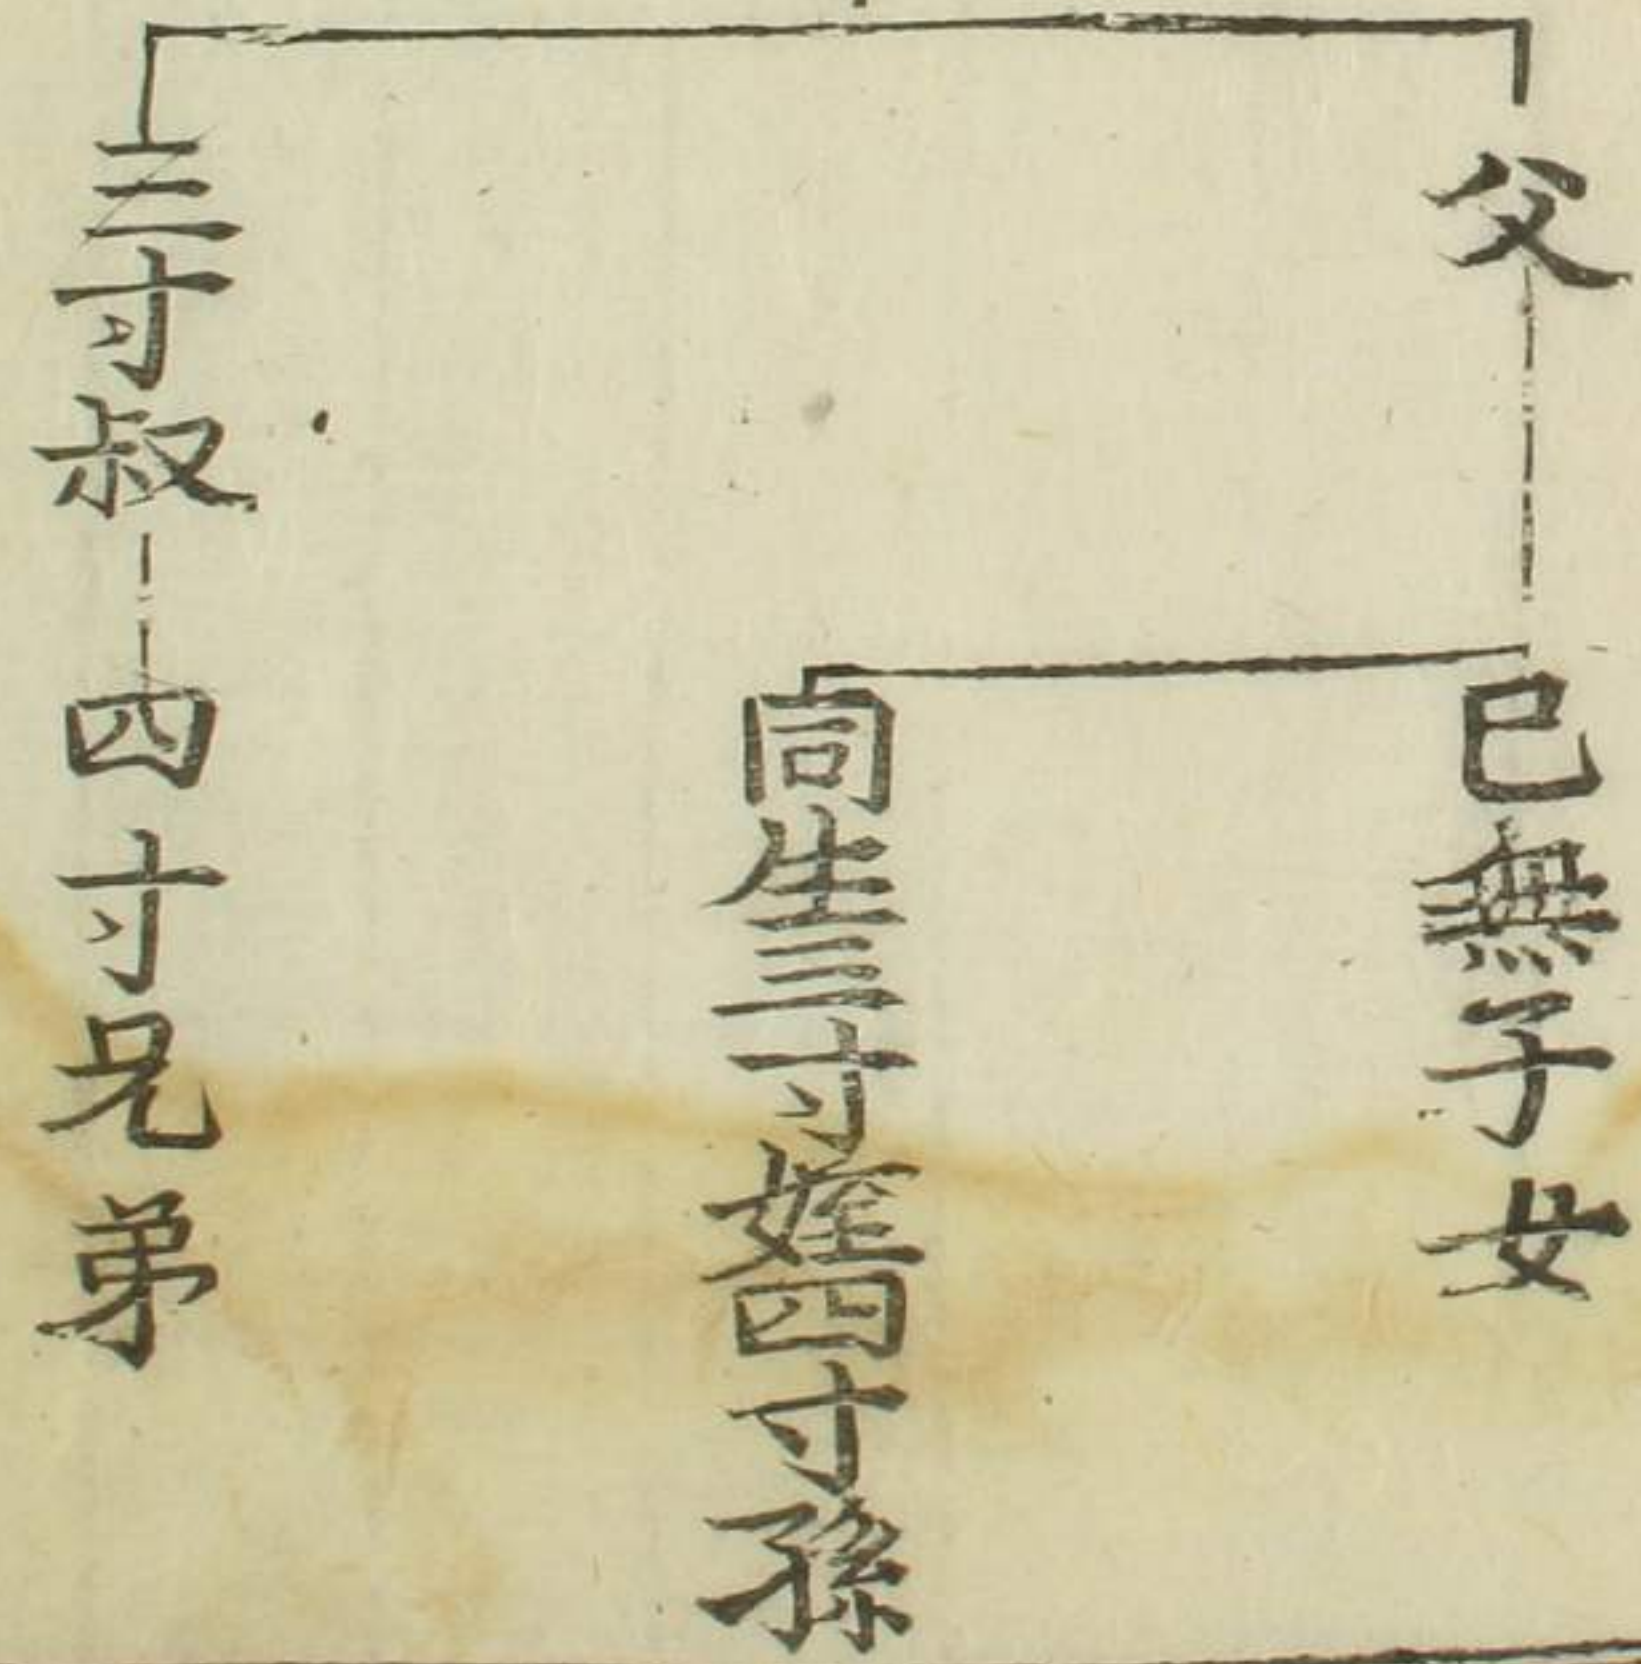 父
己無子女
同生三寸姪四寸孫
三寸叔
四寸兄弟